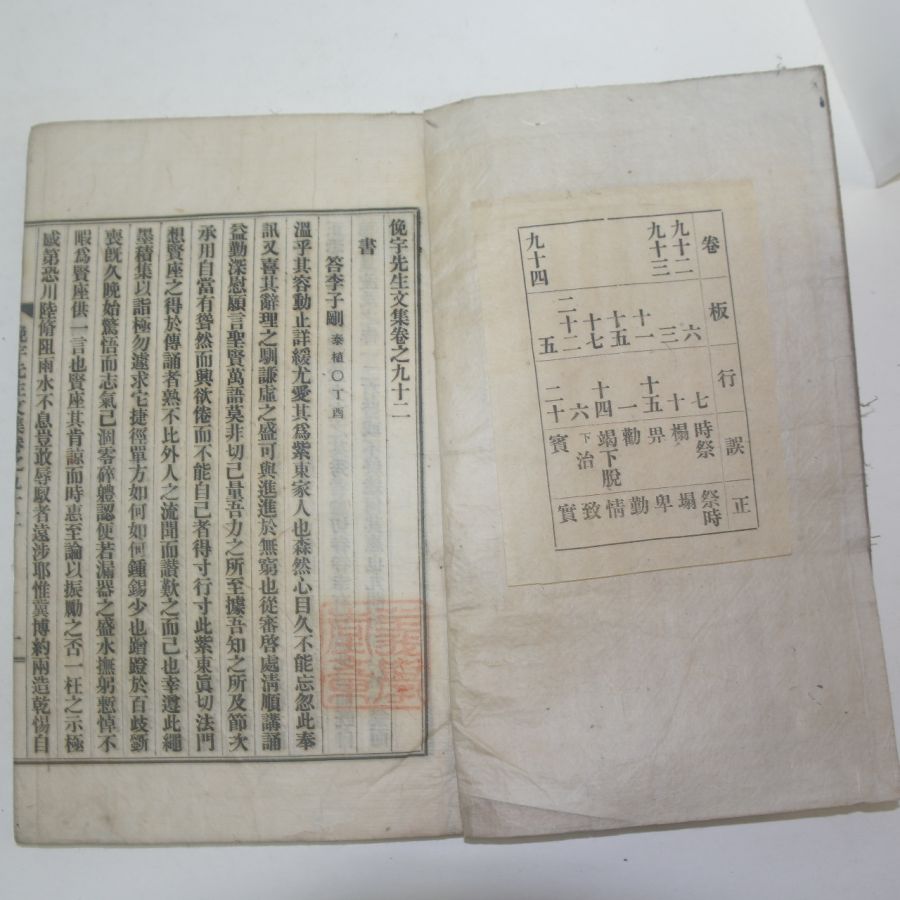 卷 板 行 誤 正
九十二 六 七 時祭 祭時
九十三 三 十 榻 塌
十一 十五 畀 卑
十五 一 勸 勤
十七 十四 竭下脫 情
二十二 六 下治 致
九十四 五 二十 賓 實
俛宇先生文集卷之九十二
書
答李子剛 泰植〇丁酉
溫乎其容動止詳緩尤愛其爲紫東家人也森然心目久不能忘忽此奉
訊又喜其辭理之馴謙虛之盛可與進進於無窮也從審啓處淸順講誦
益勤深慰願言聖賢萬語莫非切己量吾力之所至據吾知之所及節次
承用自當有聳然而興欲倦而不能自己者得寸行寸此紫東眞切法門
想賢座之得於傳誦者熟不比外人之流聞而讃歎之而己也幸遵此繩
墨積集以詣極勿遽求它捷徑單方如何如何鍾錫少也蹭蹬於百歧斲
喪旣久晩始驚悟而志氣己涸零碎軆認便若漏器之盛水撫躬慙悼不
暇爲賢座供一言也賢座其肯諒而時惠至論以振勵之否一枉之示極
感第恐川陸脩阻雨水不息豈敢辱馭者遠涉耶惟冀博約兩造乾惕自
俛宇先生文集卷之九十二
一